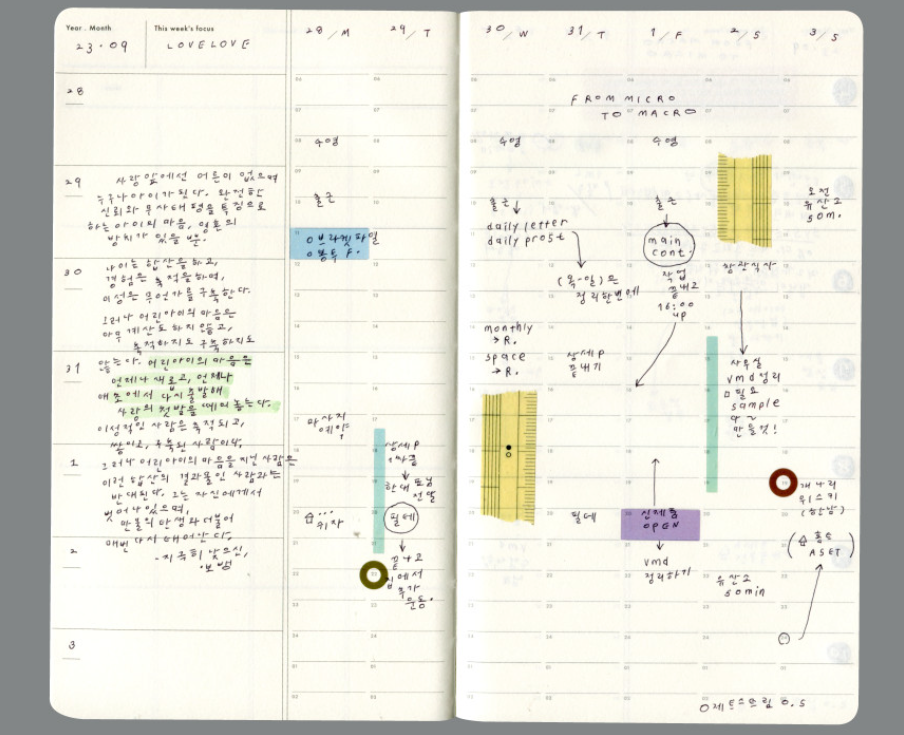 Year . Month
This week's focus
23.09
LOVELOVE
28
29
사랑 앞에선 어른이 없으며
누구나 아이가 된다. 완전한
신뢰와 무사태평을 특징으로
하는 아이의 마음, 영혼의
방치가 있을 뿐.
30
나이는 합산을 하고,
경험은 축적을 하며,
이성은 무언가를 구축한다.
그러나 어린아이의 마음은
아무 계산도 하지 않고,
축적하지도 구축하지도
31
않는다. 어린아이의 마음은
언제나 새롭고, 언제나
애초에서 다시 출발해
사랑의 첫발을 떼어 놓는다.
이성적인 사람은 축적되고,
쌓이고, 구축된 사람이나,
1
그러나 어린아이의 마음을 지닌 사람은
이런 합산의 결과물인 사람과는
반대된다. 그는 자신에게서
벗어나 있으며,
만물의 탄생과 더불어
매번 다시 태어난다.
2
-지극히 낮으신,
보뱅
3
28/M
수영
출근
브라켓파일
봉투 F.
마사지
예약
위자
29/T
상세P
전달
필테
끝나고
집에서
추가
운동.
FROM MICRO
TO MACRO
30/W
수영
출근
daily letter
daily prost
monthly
→R.
space
→R.
31/T
(목-일)은
정리한번에
상세P
끝내기
필테
1/F
수영
출근
main
cont.
작업
끝내고
16:00
up
신제품
OPEN
vmd
정리하기
2/S
사무실
vmd 정리
필요
sample
다
만들것!
유산소
50min
3/S
오전
유산소
50m.
개나리
위스키
(한남)
(홈술
ASET)